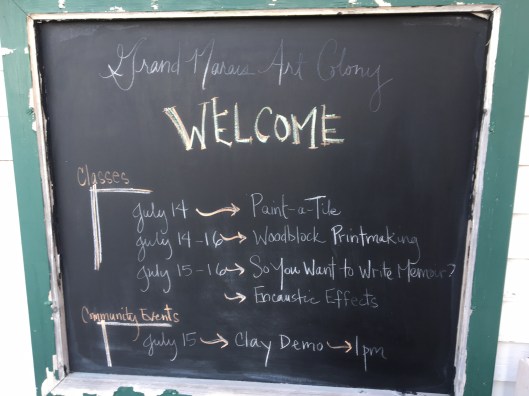 Grand Marais Art Colony
WELCOME
Classes
July 14 → Paint-a-Tile
July 14-16 → Woodblock Printmaking
July 15-16 → So You Want to Write Memoir?
→ Encaustic Effects
Community Events
July 15 → Clay Demo → 1pm